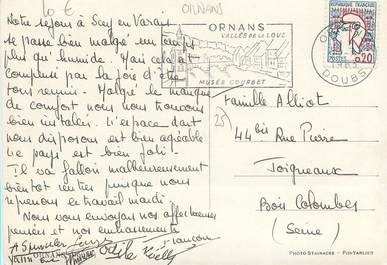 10 €
ORNANS
Notre séjour à Scey en Varais
se passe bien malgré un temps
plus qu'humide. Mais cela est
compensé par la joie d'être
tous réunis. Malgré le manque
de confort nous nous trouvons
bien installés. L'espace dont
nous disposons est bien agréable
le pays est bien joli.
Il va falloir malheureusement
bientôt rentrer puisque nous
reprenons le travail mardi.
Nous vous envoyons nos affectueuses
pensées et nos embrassements
François
Odile
ORNANS
VALLÉE DE LA LOUE
MUSÉE COURBET
DOUBS
REPUBLIQUE FRANÇAISE
POSTES
0,20
Famille Alliot
25
44 bis Rue Pierre
Joigneaux
Bois Colombes
(Seine)
PHOTO STAINACRE - PONTARLIER